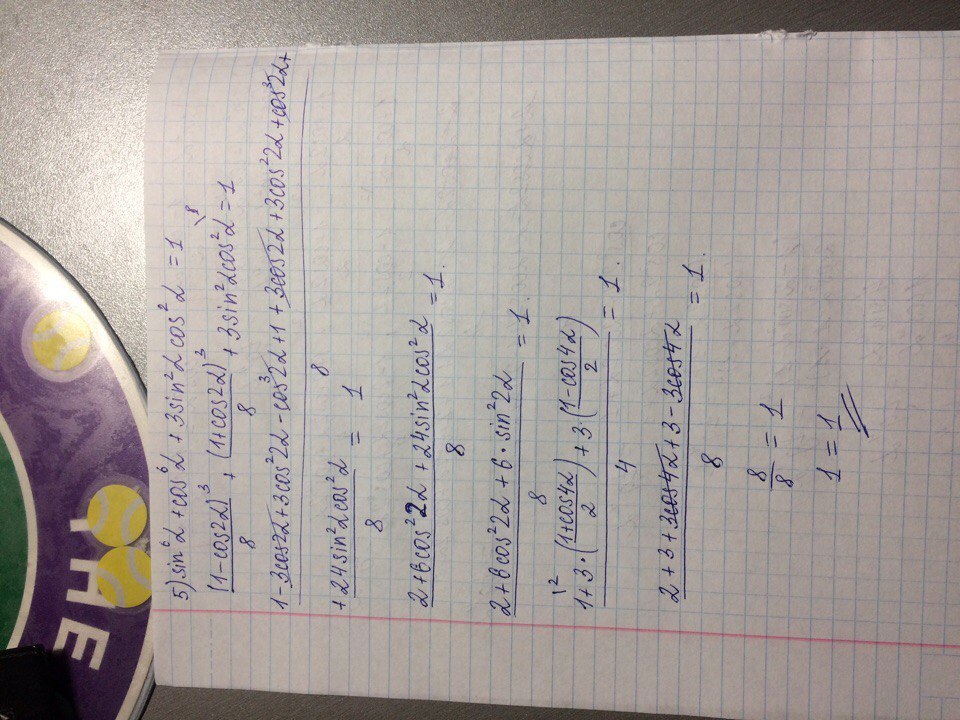 5) sin⁶α + cos⁶α + 3sin²α cos²α = 1
(1-cos2α)³/8 + (1+cos2α)³/8 + 3sin²αcos²α\⁸ = 1
1-3cos2α+3cos²2α-cos³2α+1+3cos2α+3cos²2α+cos³2α+
8
+24sin²αcos²α/8 = 1
2+6cos²2α+24sin²αcos²α/8 = 1.
2+6cos²2α+6·sin²2α/8 = 1.
1\²+3·(1+cos4α/2)+3(1-cos4α/2)/4 = 1.
2+3+3cos4α+3-3cos4α/8 = 1.
8/8 = 1
1 = 1
THE